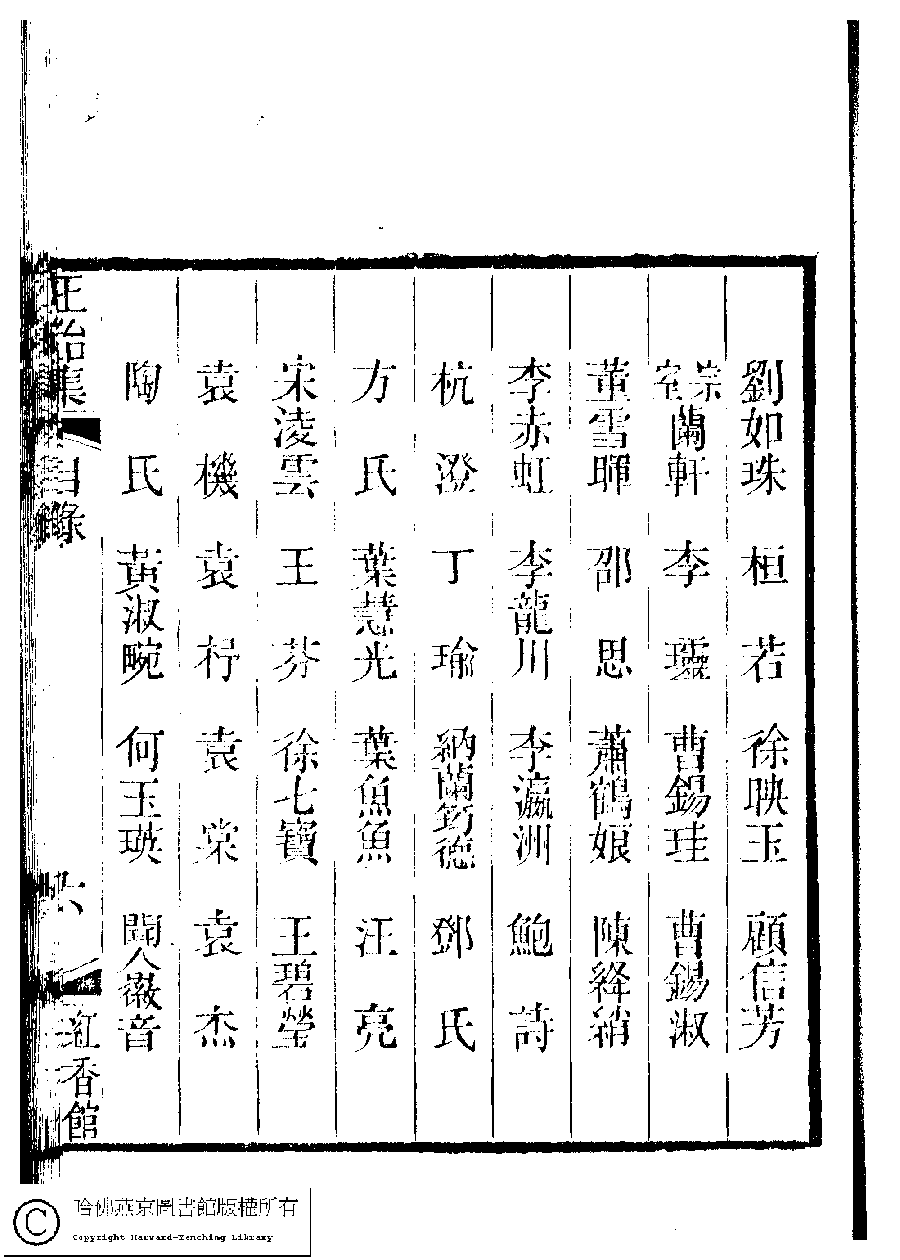 劉如珠 桓若 徐映玉 顧信芳
宗室蘭軒 李𤫊 曹錫珪 曹錫淑
董雪暉 邵思 蕭鶴娘 陳絳綃
李赤虹 李龍川 李瀛洲 鮑詩
杭澄 丁瑜 納蘭筠德 鄧氏
方氏 葉慧光 葉魚魚 汪亮
宋凌雲 王芬 徐七寶 王碧瑩
袁機 袁杼 袁棠 袁杰
陶氏 黃淑畹 何玉瑛 聞人徽音
正始集 目錄 六 紅香館
哈佛燕京圖書館版權所有
Copyright Harvard-Yenching Library